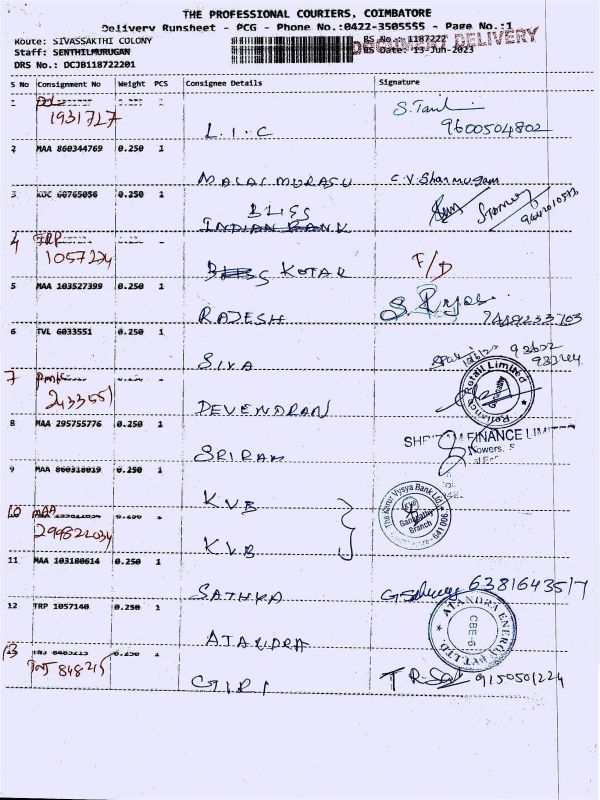 THE PROFESSIONAL COURIERS, COIMBATORE
Delivery Runsheet - PCG - Phone No.:0422-3505555 - Page No.:1
Route: SIVASSAKTHI COLONY
RS No. 1187222
DOCUMENT DELIVERY
Staff: SENTHILMURUGAN
RS Date: 13-Jun-2023
DRS No.: DCJB118722201
S No Consignment No Weight PCS Consignee Details Signature
1931727
L.I.C
9600504802
2 MAA 860344769 0.250 1
MALAI MURASU C.V. Shanmugam
3 KOC 60765056 0.250 1
BLISS
INDIAN BANK
4 TRP
1057224
KOTAK F/D
5 MAA 103527399 0.250 1
RAJESH
6 TVL 6033551 0.250 1
SIVA
7
2433551
Reliance Retail Limited
DEVENDRAN
8 MAA 295755776 0.250 1
FINANCE LIMITED
SRIRAM
9 MAA 860318019 0.250 1
KVB
The Karur Vysya Bank Ltd
Ganapathy
Branch
10 MAA
299822034
KVB
11 MAA 103180614 0.250 1
SATHYA 6381643517
12 TRP 1057140 0.250 1
ATANDRA
ATANDRA ENERGY PVT LTD.
CBE-6
13
848215
GIRI 9150501224